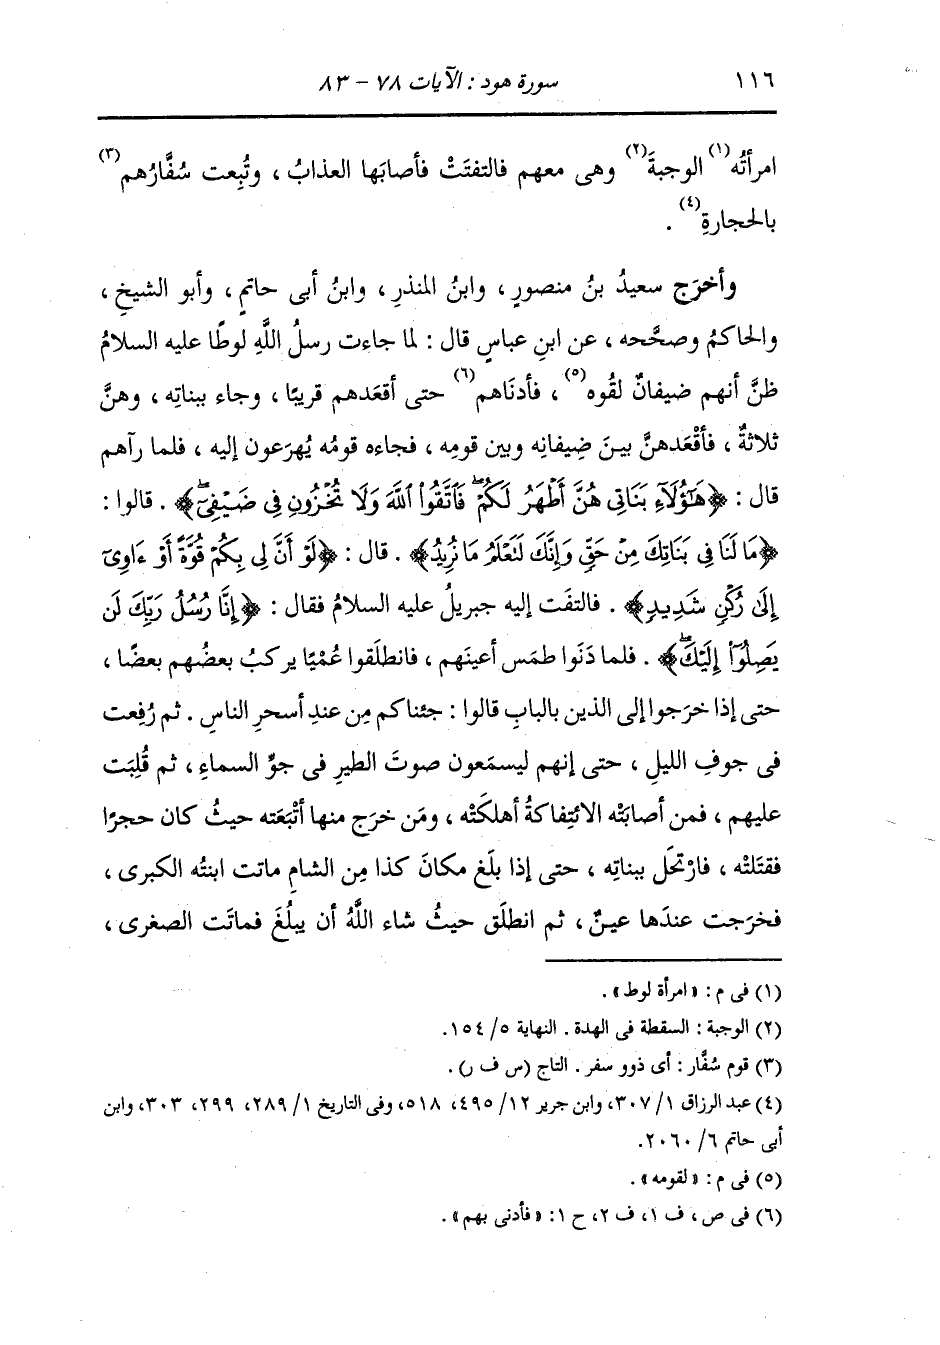 ١١٦ سورة هود : الآيات ٧٨ - ٨٣
امرأتُه(١) الوجبةَ(٢) وهى معهم فالتفتَتْ فأصابَها العذابُ ، وتُبِعت سُفَّارُهم(٣)
بالحجارةِ(٤) .
وأخرَج سعيدُ بنُ منصورٍ ، وابنُ المنذرِ ، وابنُ أبى حاتمٍ ، وأبو الشيخِ ،
والحاكمُ وصحَّحه ، عن ابنِ عباسٍ قال : لما جاءت رسلُ اللَّهِ لوطًا عليه السلامُ
ظنَّ أنهم ضيفانٌ لقُوه(٥) ، فأدنَاهم(٦) حتى أقعَدهم قريبًا ، وجاء ببناتِه ، وهنَّ
ثلاثةٌ ، فأقْعَدهنَّ بينَ ضِيفانِه وبين قومِه ، فجاءه قومُه يُهرَعون إليه ، فلما رآهم
قال : ﴿هَٰٓؤُلَآءِ بَنَاتِى هُنَّ أَطْهَرُ لَكُمْۖ فَٱتَّقُوا۟ ٱللَّهَ وَلَا تُخْزُونِ فِى ضَيْفِىٓۖ﴾ . قالوا :
﴿مَا لَنَا فِى بَنَاتِكَ مِنْ حَقٍّ وَإِنَّكَ لَتَعْلَمُ مَا نُرِيدُ﴾ . قال : ﴿لَوْ أَنَّ لِى بِكُمْ قُوَّةً أَوْ ءَاوِىٓ
إِلَىٰ رُكْنٍ شَدِيدٍ﴾ . فالتفَت إليه جبريلُ عليه السلامُ فقال : ﴿إِنَّا رُسُلُ رَبِّكَ لَن
يَصِلُوٓا۟ إِلَيْكَۖ﴾ . فلما دَنَوا طمَس أعينَهم ، فانطلَقوا عُمْيًا يركبُ بعضُهم بعضًا ،
حتى إذا خرَجوا إلى الذين بالبابِ قالوا : جئناكم مِن عندِ أسحرِ الناسِ . ثم رُفِعت
فى جوفِ الليلِ ، حتى إنهم ليسمَعون صوتَ الطيرِ فى جوِّ السماءِ ، ثم قُلِبَت
عليهم ، فمن أصابَتْه الائتِفاكةُ أهلكَتْه ، ومَن خرَج منها أتْبَعَته حيثُ كان حجرًا
فقتَلتْه ، فارْتحَل ببناتِه ، حتى إذا بلَغ مكانَ كذا مِن الشامِ ماتت ابنتُه الكبرى ،
فخرَجت عندَها عينٌ ، ثم انطلَق حيثُ شاء اللَّهُ أن يبلُغَ فماتَت الصغرى ،
(١) فى م : «امرأة لوط» .
(٢) الوجبة : السقطة فى الهدة . النهاية ٥/ ١٥٤.
(٣) قوم سُفَّار : أى ذوو سفر . التاج (س ف ر) .
(٤) عبد الرزاق ١/ ٣٠٧، وابن جرير ١٢/ ٤٩٥، ٥١٨، وفى التاريخ ١/ ٢٨٩، ٢٩٩، ٣٠٣، وابن
أبى حاتم ٦/ ٢٠٦٠.
(٥) فى م : «لقومه» .
(٦) فى ص، ف ١، ف ٢، ح ١: «فأدنى بهم» .